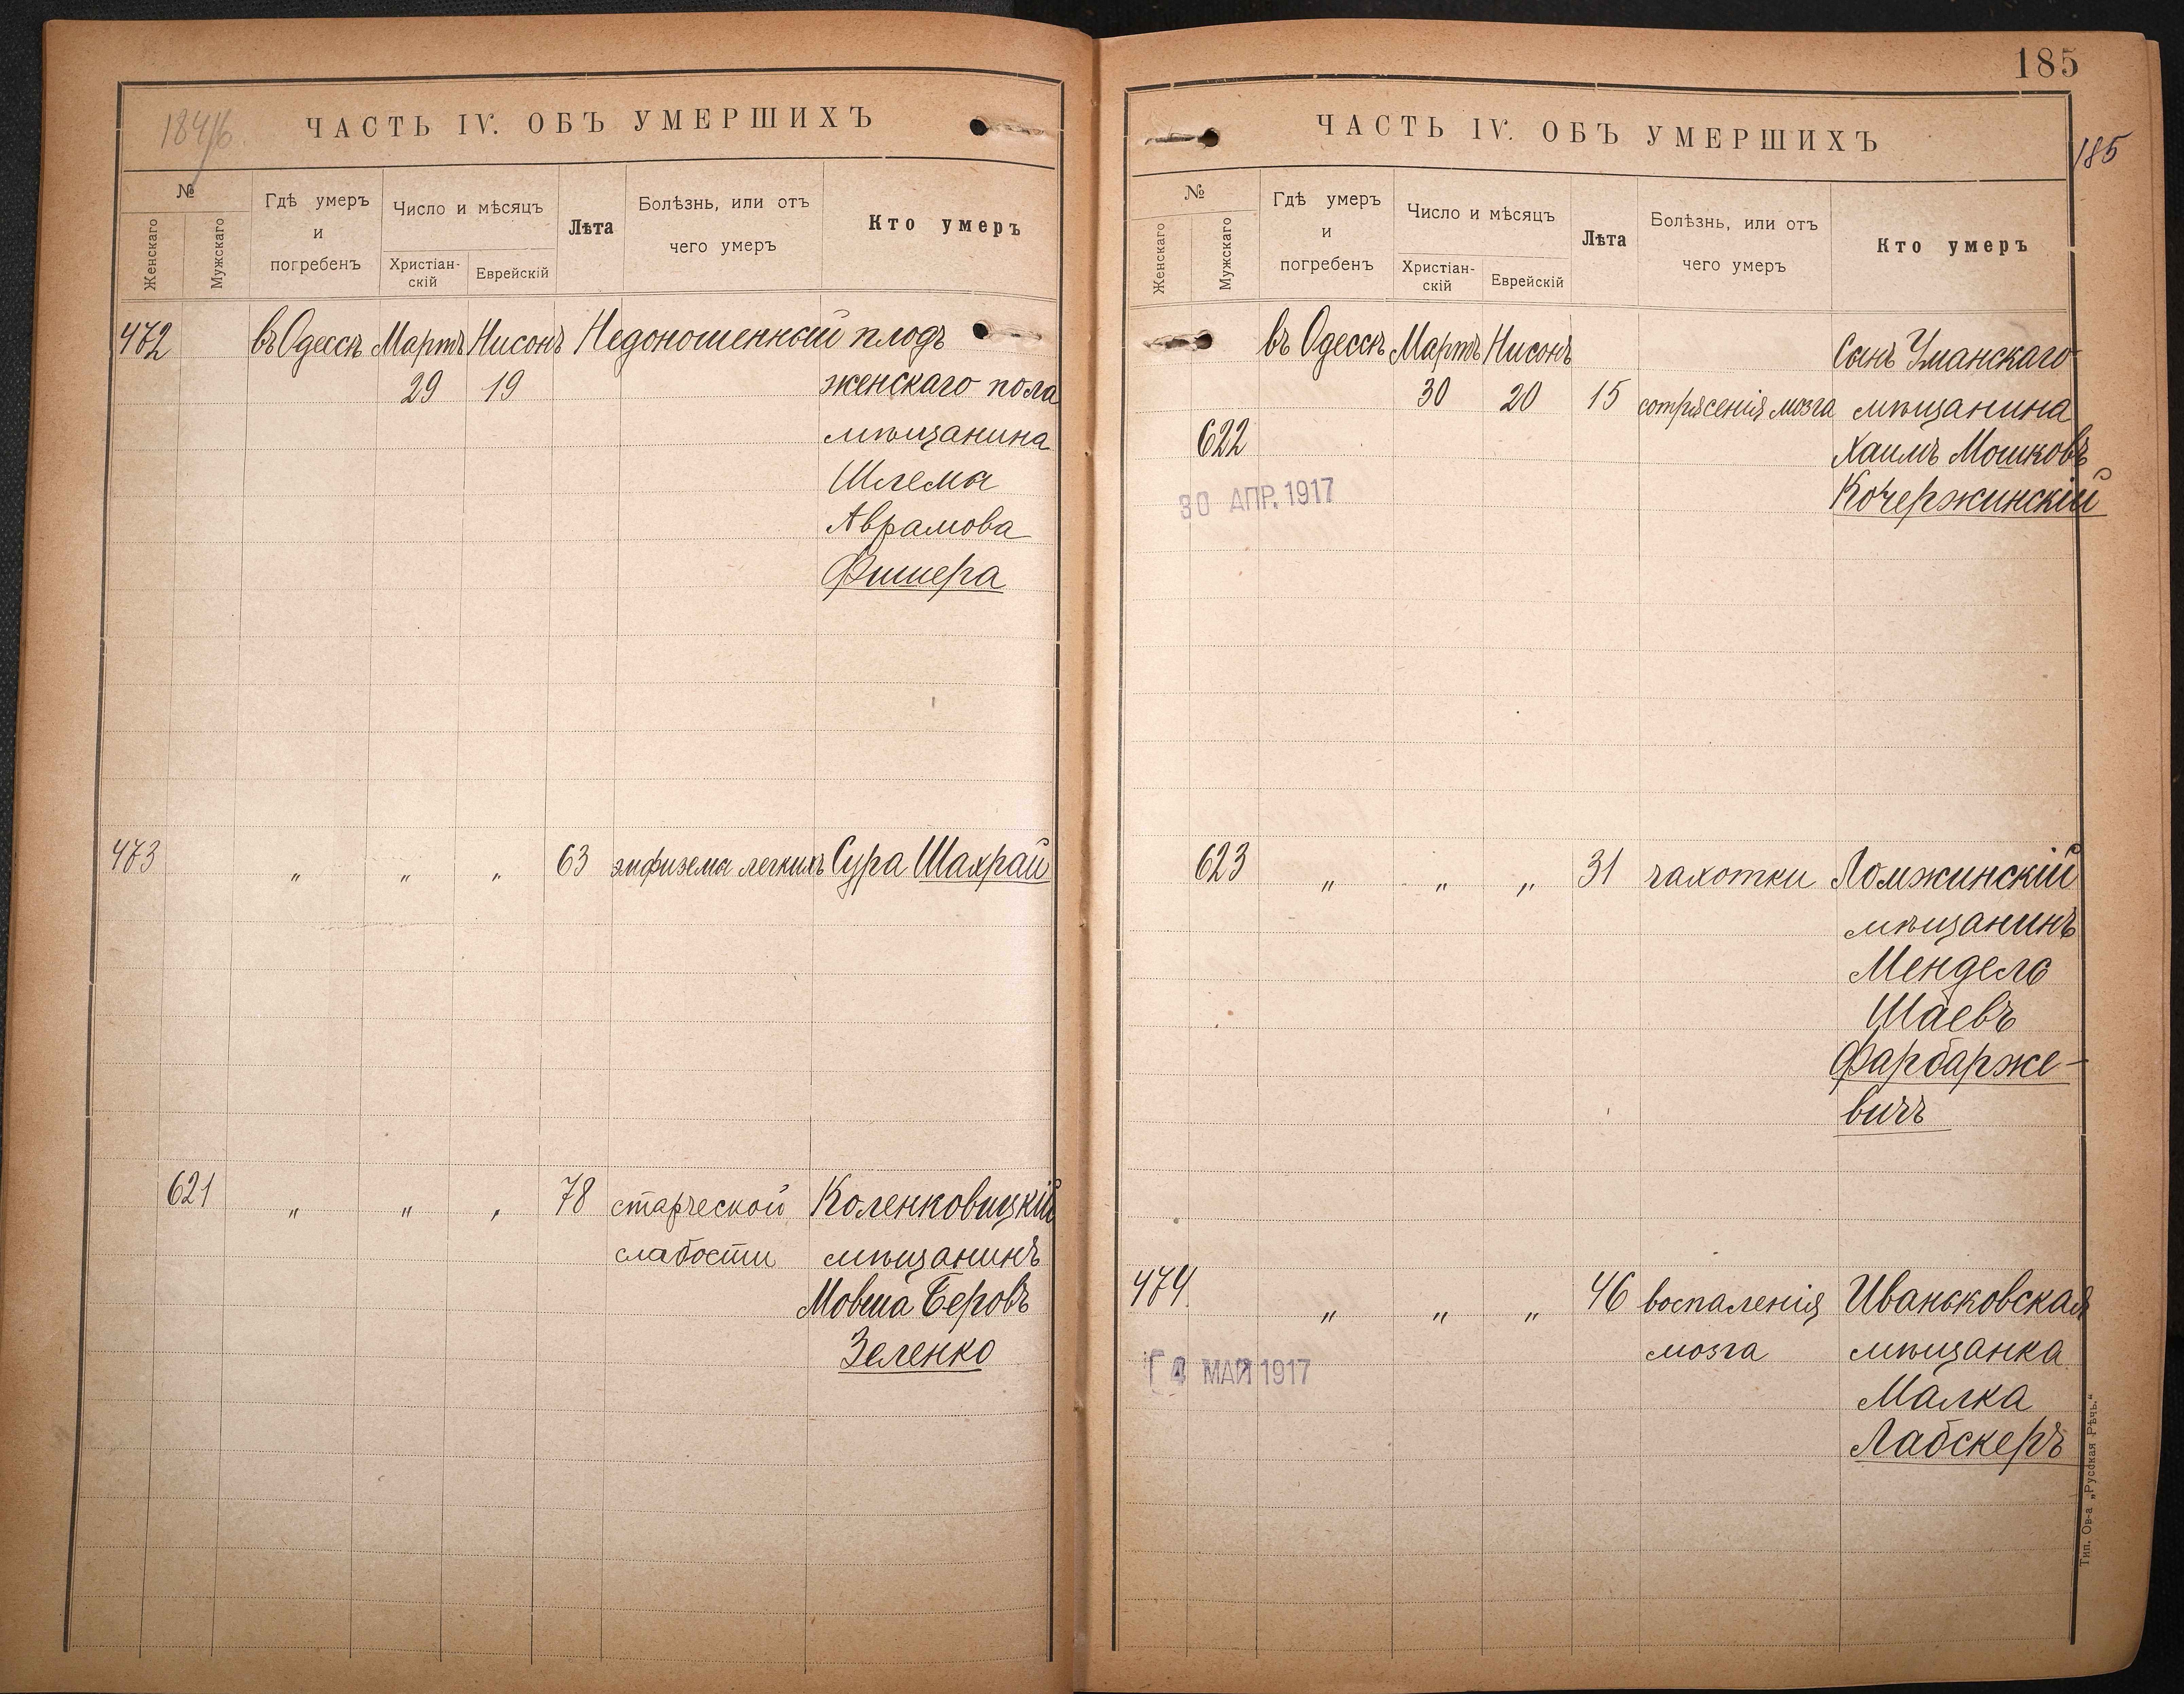 184/16.
ЧАСТЬ IV. ОБЪ УМЕРШИХЪ
№
Женскаго
Мужскаго
Гдѣ умеръ
и
погребенъ
Число и мѣсяцъ
Христіан-
скій
Еврейскій
Лѣта
Болѣзнь, или отъ
чего умеръ
Кто умеръ
472 въ Одессѣ Мартъ Нисонъ Недоношенный плодъ
29 19 женскаго пола
мѣщанина
Шлемы
Аврамова
Фишера
473 " " " 63 эмфизема легкихъ Сура Шахрай
621 " " " 78 старческой Коленковицкій
слабости мѣщанинъ
Мовша Беровъ
Зеленко
185
185
ЧАСТЬ IV. ОБЪ УМЕРШИХЪ
№
Женскаго
Мужскаго
Гдѣ умеръ
и
погребенъ
Число и мѣсяцъ
Христіан-
скій
Еврейскій
Лѣта
Болѣзнь, или отъ
чего умеръ
Кто умеръ
въ Одессѣ Мартъ Нисонъ Сынъ Уманскаго
30 20 15 сотрясенія мозга мѣщанина
622 Хаимъ Мошковъ
30 АПР. 1917 Кочержинскій
623 " " " 31 чахотки Ломжинскій
мѣщанинъ
Мендель
Шаевъ
Фарбарже-
вичъ
474 " " " 46 воспаленія Иваньковская
мозга мѣщанка
4 МАЙ 1917
Малка
Лабскеръ
Тип. Ов-а „Русская Рѣчь."